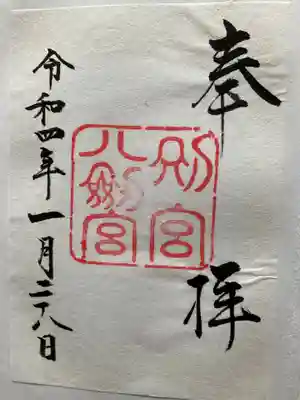 奉拝
別宮
八剱宮
令和四年一月二八日